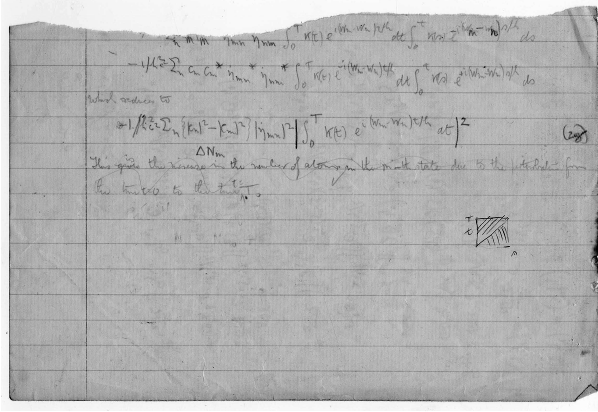 ∫₀ᵀ κ(t) e^{i(Wm-Wn)t/h} dt ∫₀ᵀ κ(s) e^{-i(Wm-Wn)s/h} ds
- 1/h²c² Σn cn cn* η̇mn* η̇nm* ∫₀ᵀ κ(t) e^{-i(Wm-Wn)t/h} dt ∫₀ᵀ κ(s) e^{i(Wm-Wn)s/h} ds
which reduces to
= 1/h²c² Σn {|cn|² - |cm|²} |η̇mn|² |∫₀ᵀ κ(t) e^{i(Wm-Wn)t/h} dt|² (28)
ΔNm
This gives the increase in the number of atoms in the m-th state due to the perturbation from
the time 0 to the time T.
T
t
s